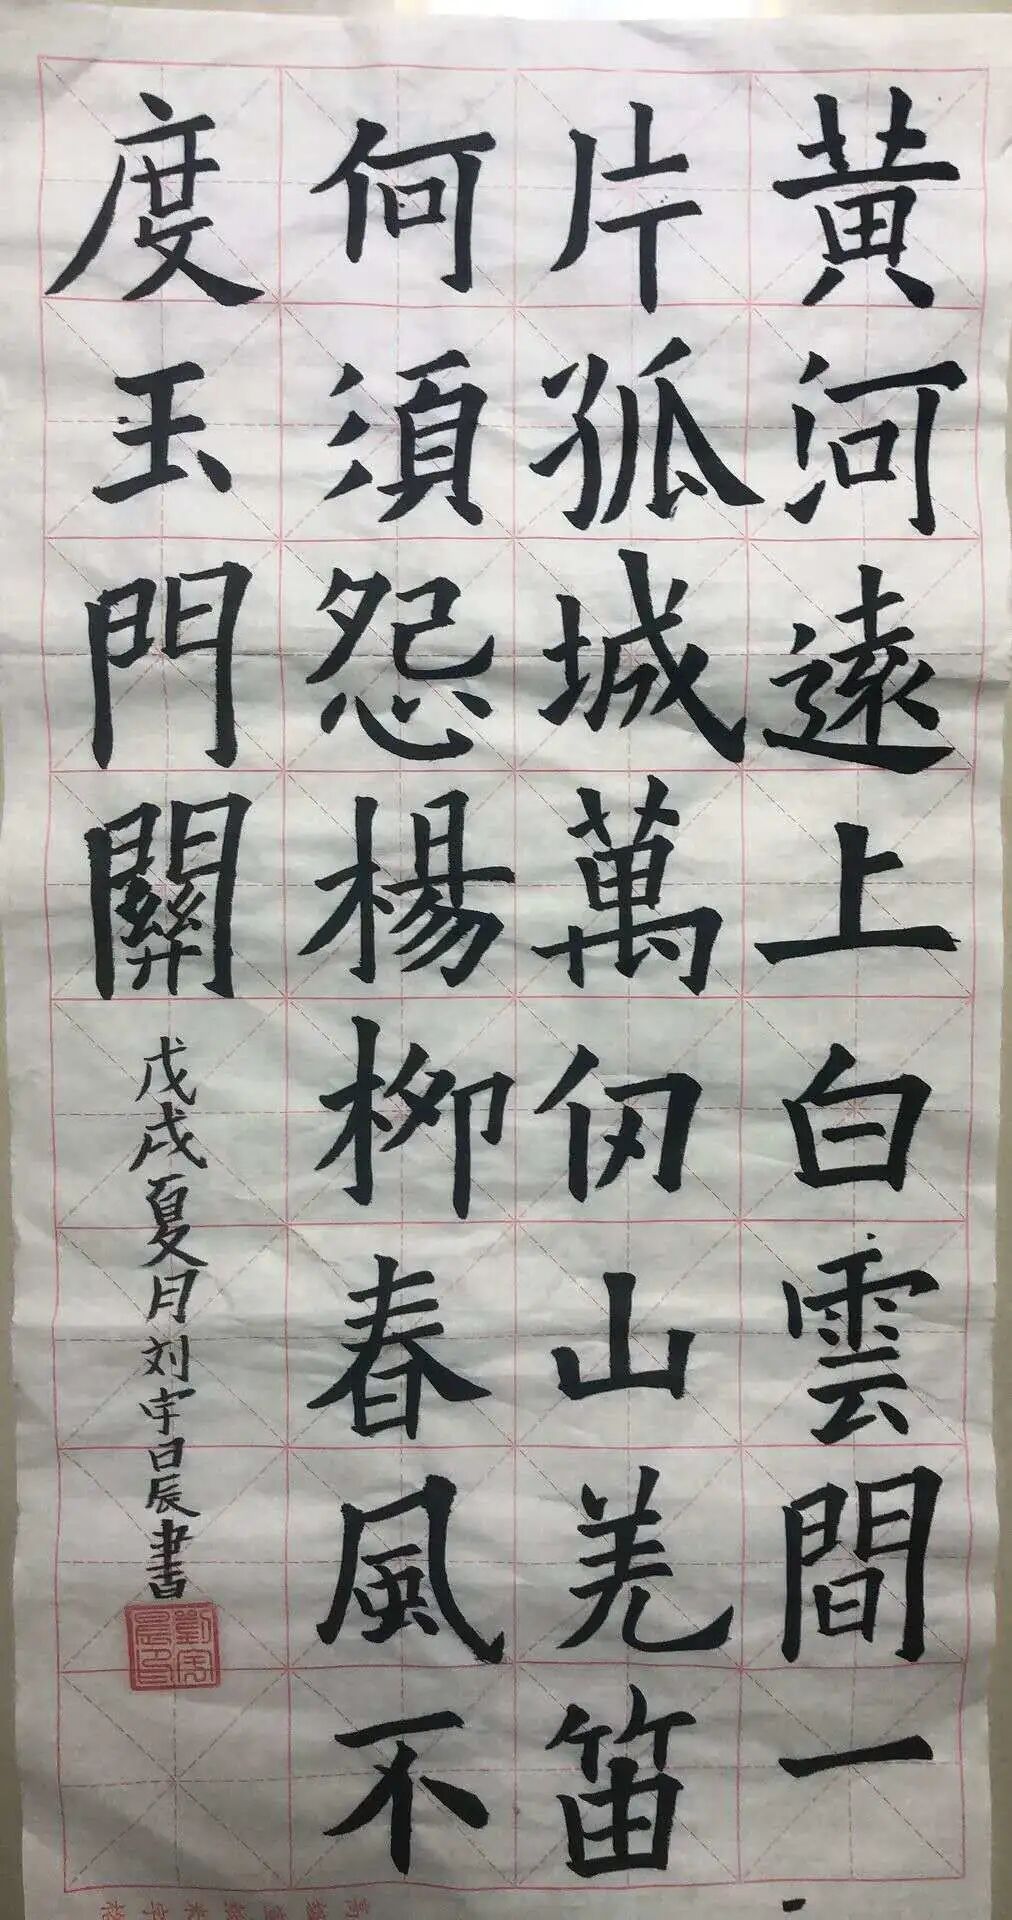 黄河遠上白雲間一
片孤城萬仞山羌笛
何須怨楊柳春風不
度玉門關
戊戌夏月刘宇日辰書